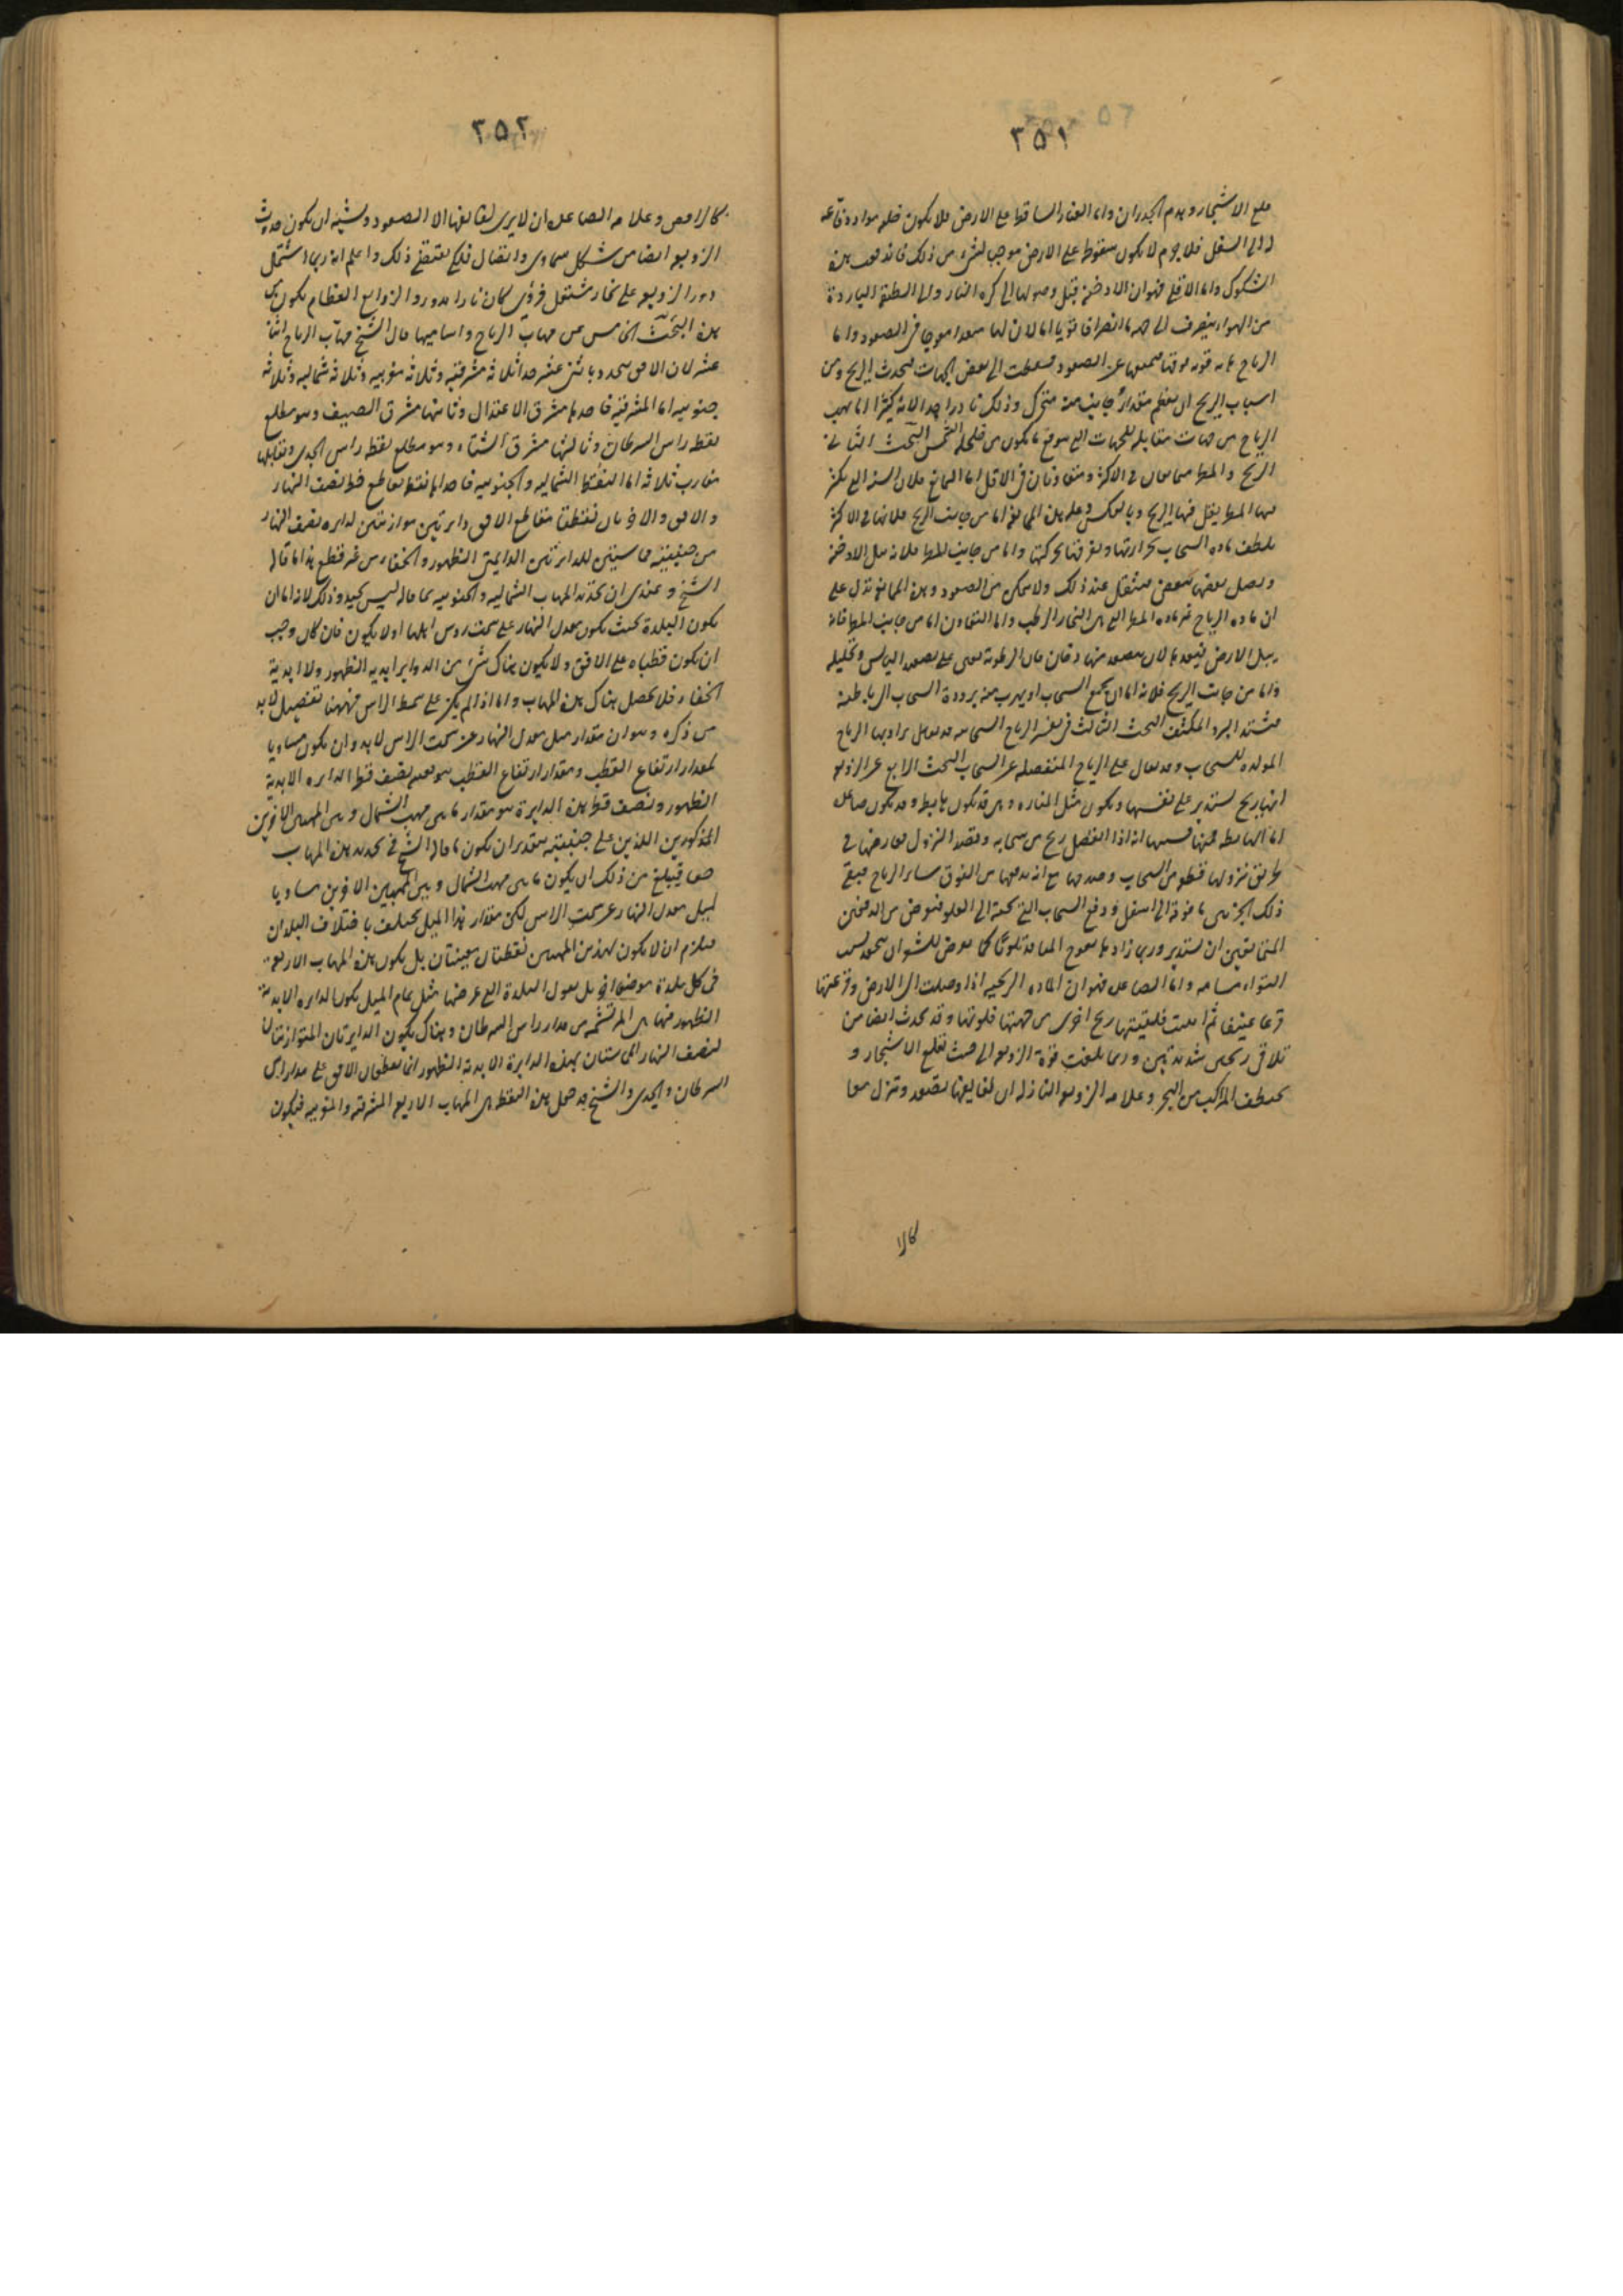 ٣٥١
قلع الاشجار وهدم الجدران واما الغبار الساقط على الارض فلا يكون خلفه مواد دفاعه
له الى السفل فلا جرم لا يكون سقوطه على الارض موجب لشىء من ذلك فاندفعت هذه
الشكوك واما الاقلى فهو ان الادخنة قبل وصولها الى كرة النار والى الطبقة الباردة
من الهواء ينصرف الى جهة ما انصرافا قويا اما لان لها مصعدا معوجا فى الصعود واما
الرياح عاليه قوية فوقها تمنعها عن الصعود فعطفت الى بعض الجهات فيحدث الريح ومن
اسباب الريح ان يعظم مقدار جانب منه متحرك وذلك نادرا جدا لانه كثيرا ما يهب
الرياح من جهات مقابلة للجهات التى يتوقع ما يكون من تحليل الشمس البحث الثانى
الريح والمطر متمانعان فى الاكثر ومتعاونان فى الاقل اما التمانع فلان السنة التى يكثر
فيها المطر يقل فيها الريح وبالعكس وعلة هذه الممانعة اما من جانب الريح فلانها فى الاكثر
يلطف مادة السحاب بحرارتها ويفرقها بحركتها واما من جانب المطر فلانه يبل الادخنة
ويصل بعضها ببعض فيثقل عند ذلك ولا يتمكن من الصعود وهذه الممانعة تدل على
ان مادة الرياح غير مادة المطر التى هى البخار الرطب واما التعاون اما من جانب المطر فانه
يبل الارض فيعدها لان يصعد منها دخان فان الرطوبة تعين على تصعد اليابس وتحليله
واما من جانب الريح فلانه اما ان يجمع السحاب او يهرب منه برودة السحاب الى باطنه
فيشتد البرد المكثف البحث الثالث فى تفسير الرياح السحابية قد يقال يراد بها الرياح
المولدة للسحاب وقد يقال على الرياح المنفصلة عن السحاب البحث الرابع عن الزوبعة
انها ريح يستدير على نفسها ويكون مثل المنارة وهى قد يكون هابطة وقد يكون صاعدة
اما الهابطة فمنها سببها انه اذا انفصل ريح من سحابة وقصد النزول فعارضها فى
طريق نزولها قطعة من السحاب وصدمتها مع انه يدفعها من الفوق سائر الرياح فيبقى
ذلك الجزء بين ما فوقه الى اسفل ودفع السحاب الذى تحته الى العلو فيعرض من الدفعين
المتمانعين ان يستدير وربما زاده تعوج المنافذ تلويًا كما يعرض للشعر ان يتجعد بسبب
التواء مسامه واما الصاعدة فهو ان المادة الريحية اذا وصلت الى الارض وقرعتها
قرعا عنيفا ثم انثنت فلقيتها ريح اخرى من جهتها فلوتها وقد يحدث ايضا من
تلاقى ريحين شديدتين وربما بلغت قوة الزوبعة الى حيث تقلع الاشجار و
تختطف المراكب من البحر وعلامة الزوبعة النازلة ان لفايفها يصعد وتنزل معا
كالا
٣٥٢
كالراقص وعلامة الصاعدة ان لا يرى لفايفها الا الصعود ويشبه ان يكون حدوث
الزوبعة ايضا من شكل سماوى واتصال فلكى يقتضى ذلك واعلم انه ربما اشتمل
دور الزوبعة على بخار مشتعل فرؤى كان نارا يدور والزوابع العظام يكون من
هذه البحث الخامس عن مهاب الرياح واساميها قال الشيخ مهاب الرياح اثنا
عشر لان الافق يتحدد باثنى عشر حدا ثلاثة مشرقية وثلاثة مغربية وثلاثة شمالية وثلاثة
جنوبية اما المشرقية فاحدها مشرق الاعتدال وثانيها مشرق الصيف وهو مطلع
نقطة راس السرطان وثالثها مشرق الشتاء وهو مطلع نقطة راس الجدى ويقابلها
مغارب ثلاثة اما النقط الشمالية والجنوبية فاحداها نقطة تقاطع خط نصف النهار
والافق والاخريان نقطتا تقاطع الافق ودايرتين موازيتين لدايرة نصف النهار
من جنبيتيه مماستين للدايرتين الدايمتى الظهور والخفاء من غير قطع هذا ما قاله
الشيخ وعندى ان تحديد المهاب الشمالية والجنوبية بما قاله ليس بجيد وذلك لانه اما ان
يكون البلدة بحيث يكون معدل النهار على سمت رءوس اهلها او لا يكون فان كان وجب
ان يكون قطباه على الافق ولا يكون هناك شىء من الدواير ابدية الظهور ولا ابدية
الخفاء فلا يحصل هناك هذه المهاب واما اذا لم يكن على سمت الراس فههنا تفصيل لابد
من ذكره وهو ان مقدار ميل معدل النهار عن سمت الراس لابد وان يكون مساويا
لمقدار ارتفاع القطب ومقدار ارتفاع القطب هو بعينه نصف قطر الدايرة الابدية
الظهور ونصف قطر هذه الدايرة هو مقدار ما بين مهب الشمال وبين المهبين الاخرين
المذكورين اللذين على جنبيتيه بتقدير ان يكون ما قاله الشيخ فى تحديد هذه المهاب
حقا فيبلغ من ذلك ان يكون ما بين مهب الشمال وبين المهبين الاخرين مساويا
لميل معدل النهار عن سمت الراس لكن مقدار هذا الميل يختلف باختلاف البلدان
فيلزم ان لا يكون لهذين المهبين نقطتان معينتان بل يكون هذه المهاب الاربعة
فى كل بلدة موضعا اخر بل نقول البلدة التى عرضها مثل تمام الميل يكون الدايرة الابدية
الظهور فيها هى المرتسمة من مدار راس السرطان وهناك يكون الدايرتان المتوازيتان
لنصف النهار المماستان بهذه الدايرة الابدية الظهور انما يقطعان الافق على مدار راس
السرطان والجدى والشيخ قد جعل هذه النقطة هى المهاب الاربع المشرقية والمغربية فيكون